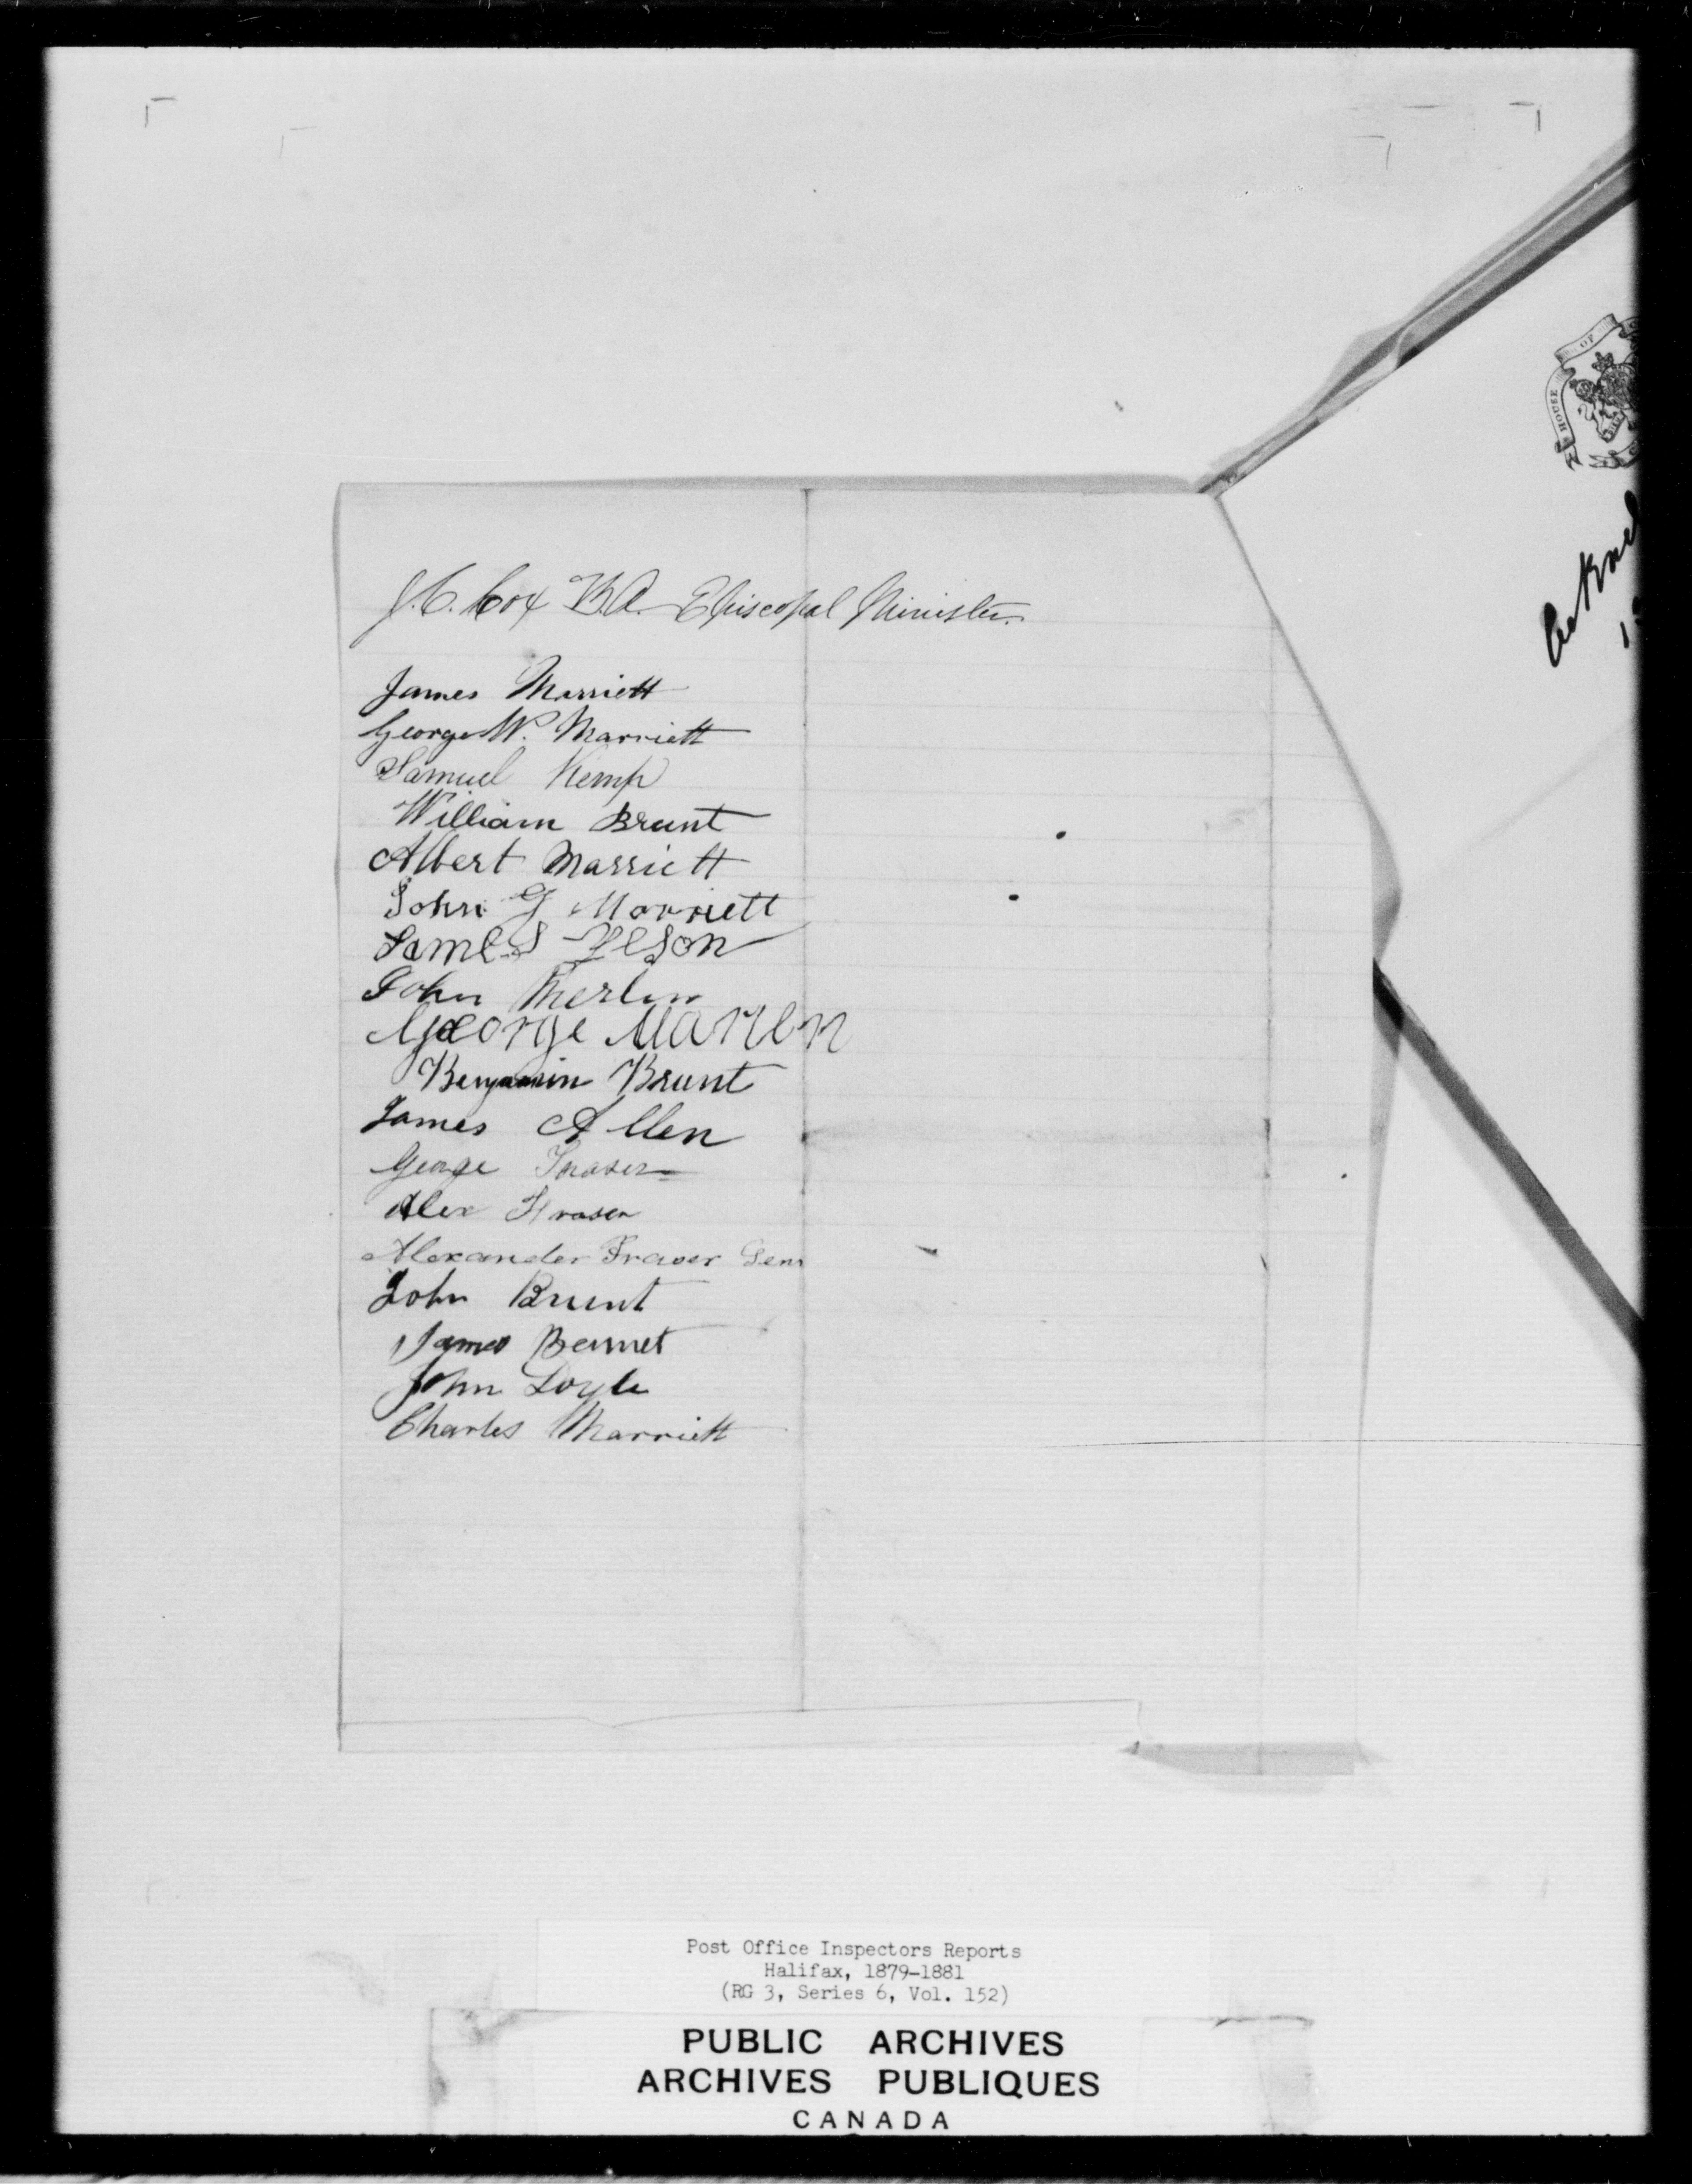 J.C. Cox B.A. Episcopal Minister.
James Marriett
George W. Marriett
Samuel Kemp
William Brunt
Albert Marriett
John G Marriett
James
John Merlin
George
Benjamin Brunt
James Allen
George Fraser
Alex Fraser
Alexander Fraser Senr
John Brunt
James Bennet
John Doyle
Charles Marriett
HOUSE OF
Post Office Inspectors Reports
Halifax, 1879-1881
(RG 3, Series 6, Vol. 152)
PUBLIC ARCHIVES
ARCHIVES PUBLIQUES
CANADA